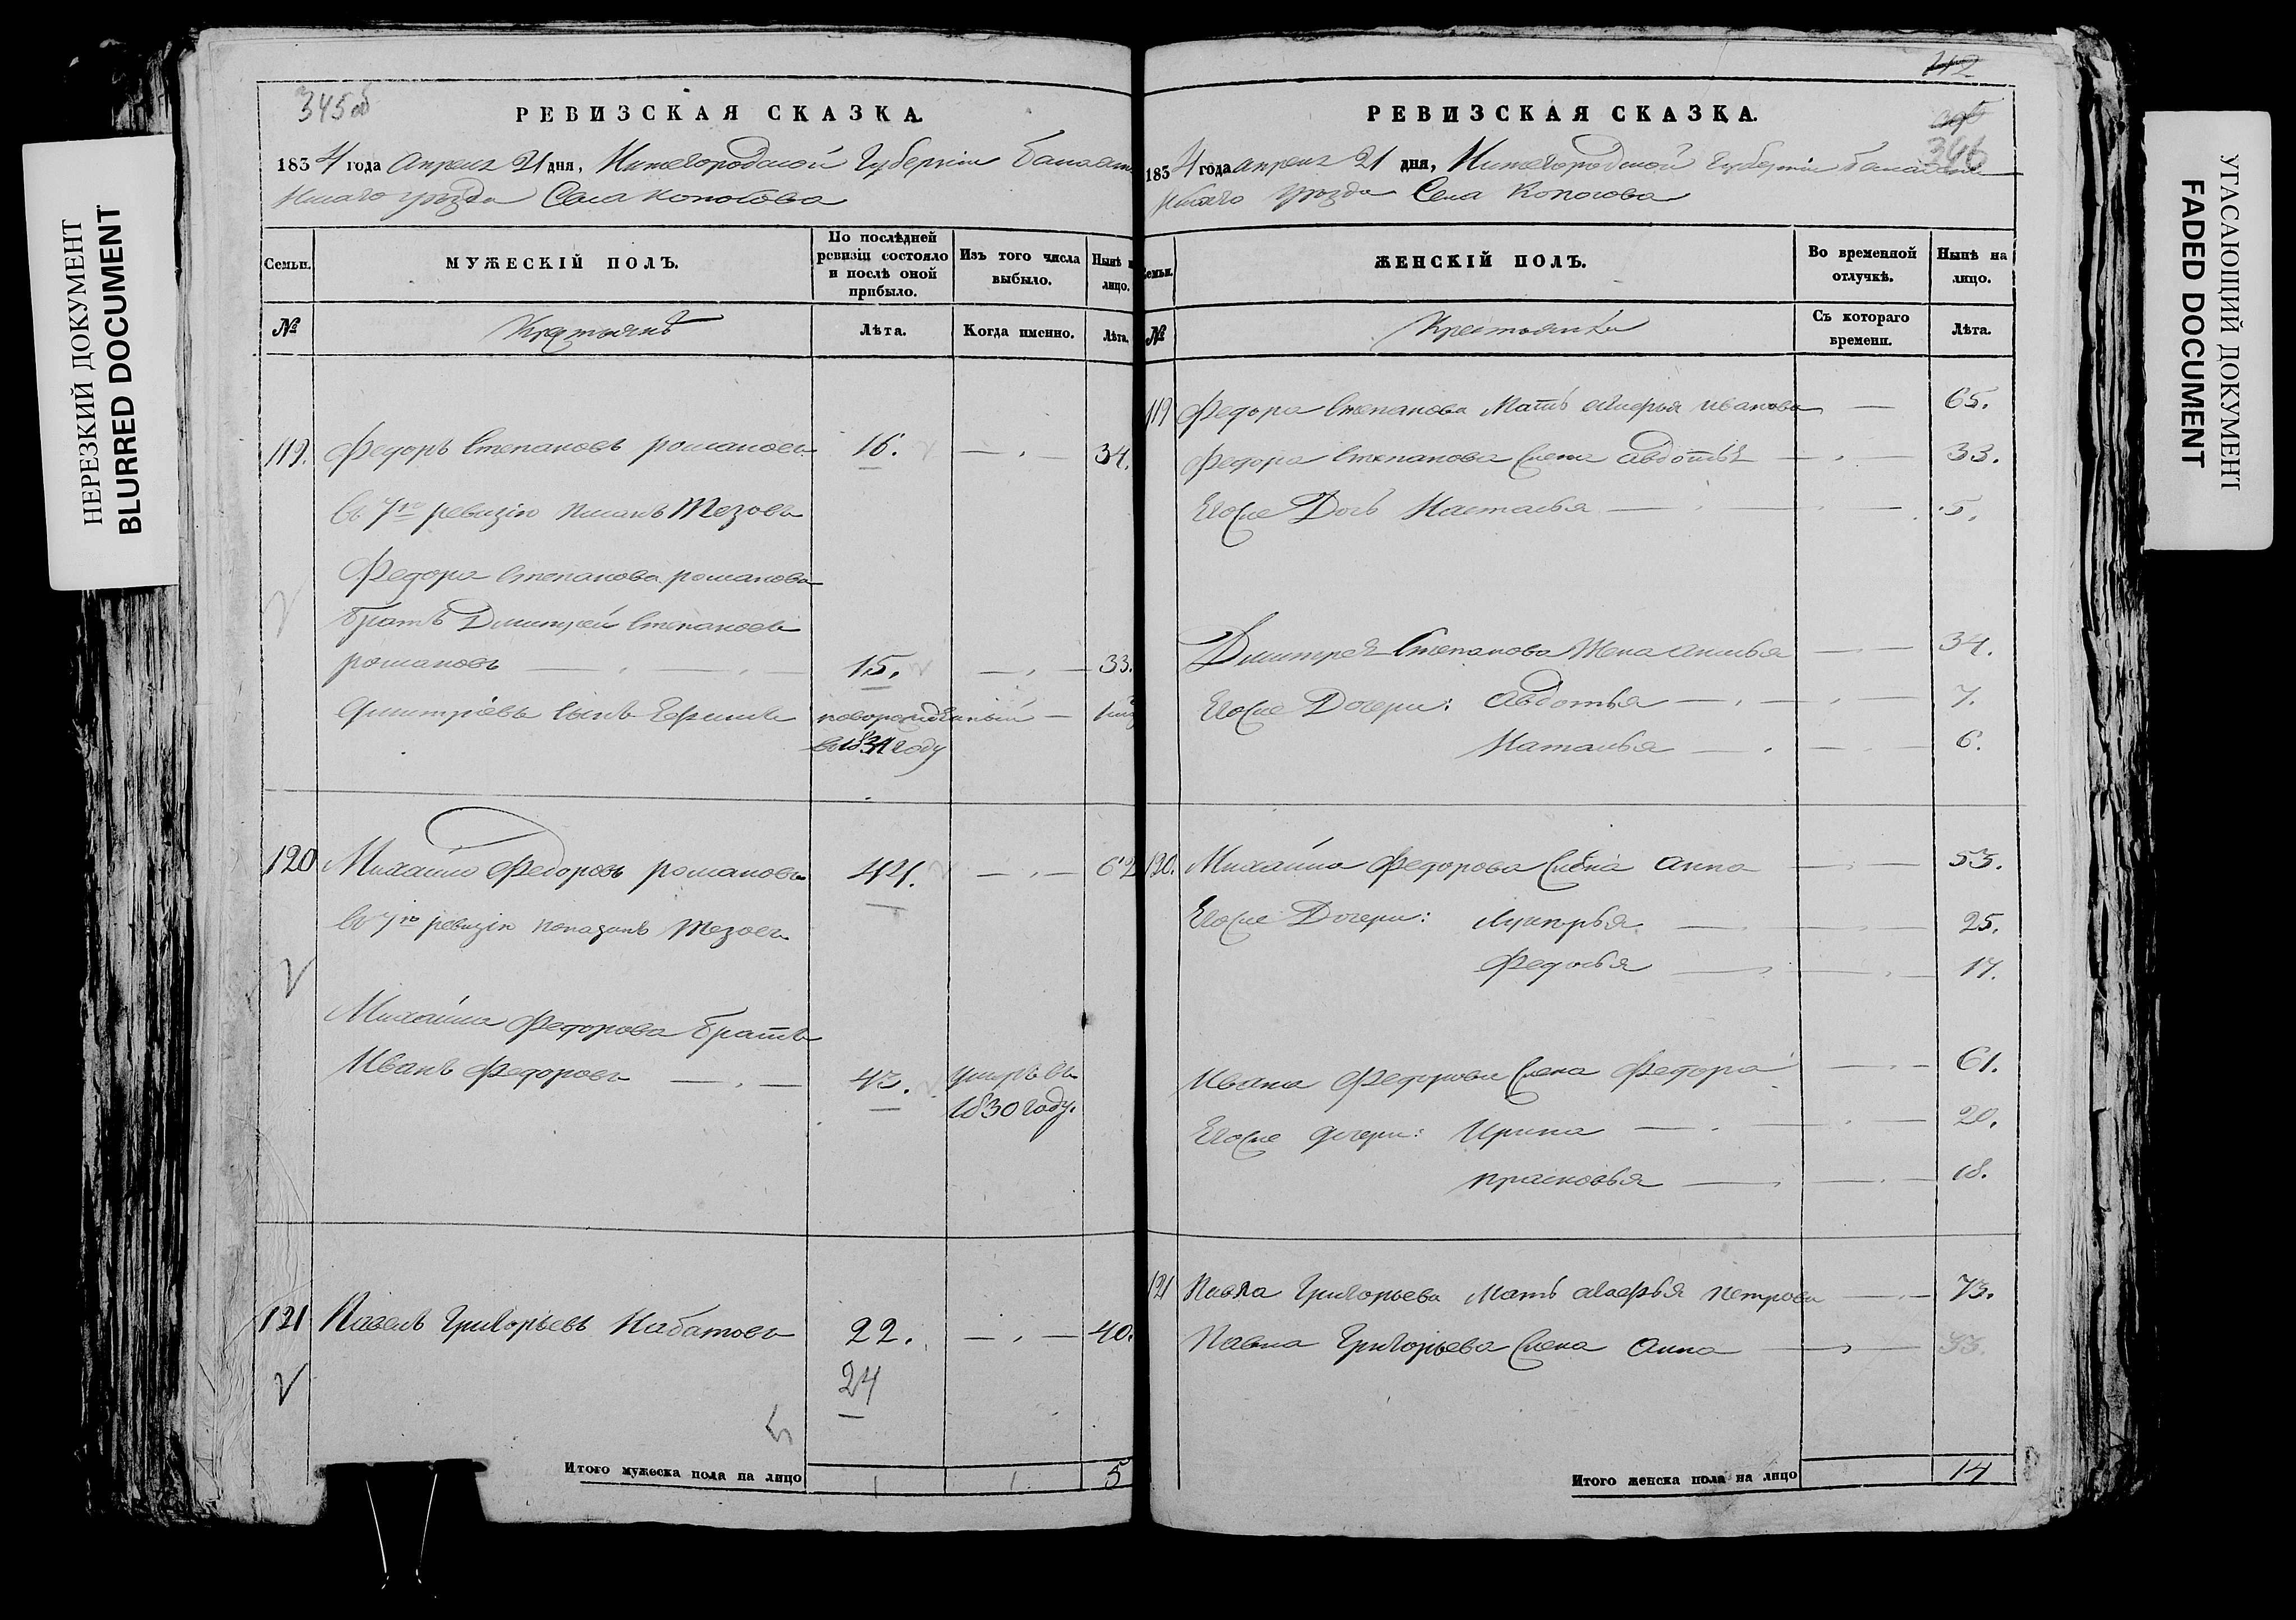 НЕРЕЗКИЙ ДОКУМЕНТ
BLURRED DOCUMENT
345об
РЕВИЗСКАЯ СКАЗКА.
1834 года апреля 21 дня, Нижегородской Губернии Балахн
нскаго уезда Села Копосова
Семьи.
МУЖЕСКІЙ ПОЛЪ.
По послѣдней ревизіи состояло и послѣ оной прибыло.
Изъ того числа выбыло.
Нынѣ на лицо.
№
Крестьянъ
Лѣта.
Когда именно.
Лѣта.
119. Федоръ Степановъ романовъ 16. 34.
въ 7ю ревизію писанъ Тезовъ
Федора Степанова романова
братъ Дмитрей Степановъ
романовъ 15. 33.
Дмитріевъ сынъ Ефимъ новорожденный
въ 1831 году
120 Михайло Федоровъ романовъ 44. 62
въ 7ю ревизію показанъ Тезовъ
Михайла Федорова братъ
Иванъ Федоровъ 43. умеръ въ
1830 году.
121 Павелъ Григорьевъ Набатовъ 22. 40.
24
5
Итого мужеска пола на лицо 5
112
346
РЕВИЗСКАЯ СКАЗКА.
1834 года апреля 21 дня, Нижегородской Губернии Балахн
нскаго уезда Села Копосова
Семьи.
ЖЕНСКІЙ ПОЛЪ.
Во временной отлучкѣ.
Нынѣ на лицо.
№
Крестьянки
Съ котораго времени.
Лѣта.
119 Федора Степанова Мать Марья иванова 65.
Федора Степанова Жена Авдотья 33.
Егоже Дочь Настасья 5.
Дмитрея Степанова Жена 34.
Егоже Дочери: Авдотья 7.
Наталья 6.
120. Михайла Федорова Жена Анна 53.
Егоже Дочери: Лукерья 25.
Федосья 17.
Ивана Федорова Жена Федора 61.
Егоже дочери: Ирина 20.
прасковья 18.
121 Павла Григорьева Мать Марфа петрова 73.
Павла Григорьева Жена Анна 33.
Итого женска пола на лицо 14
УГАСАЮЩИЙ ДОКУМЕНТ
FADED DOCUMENT